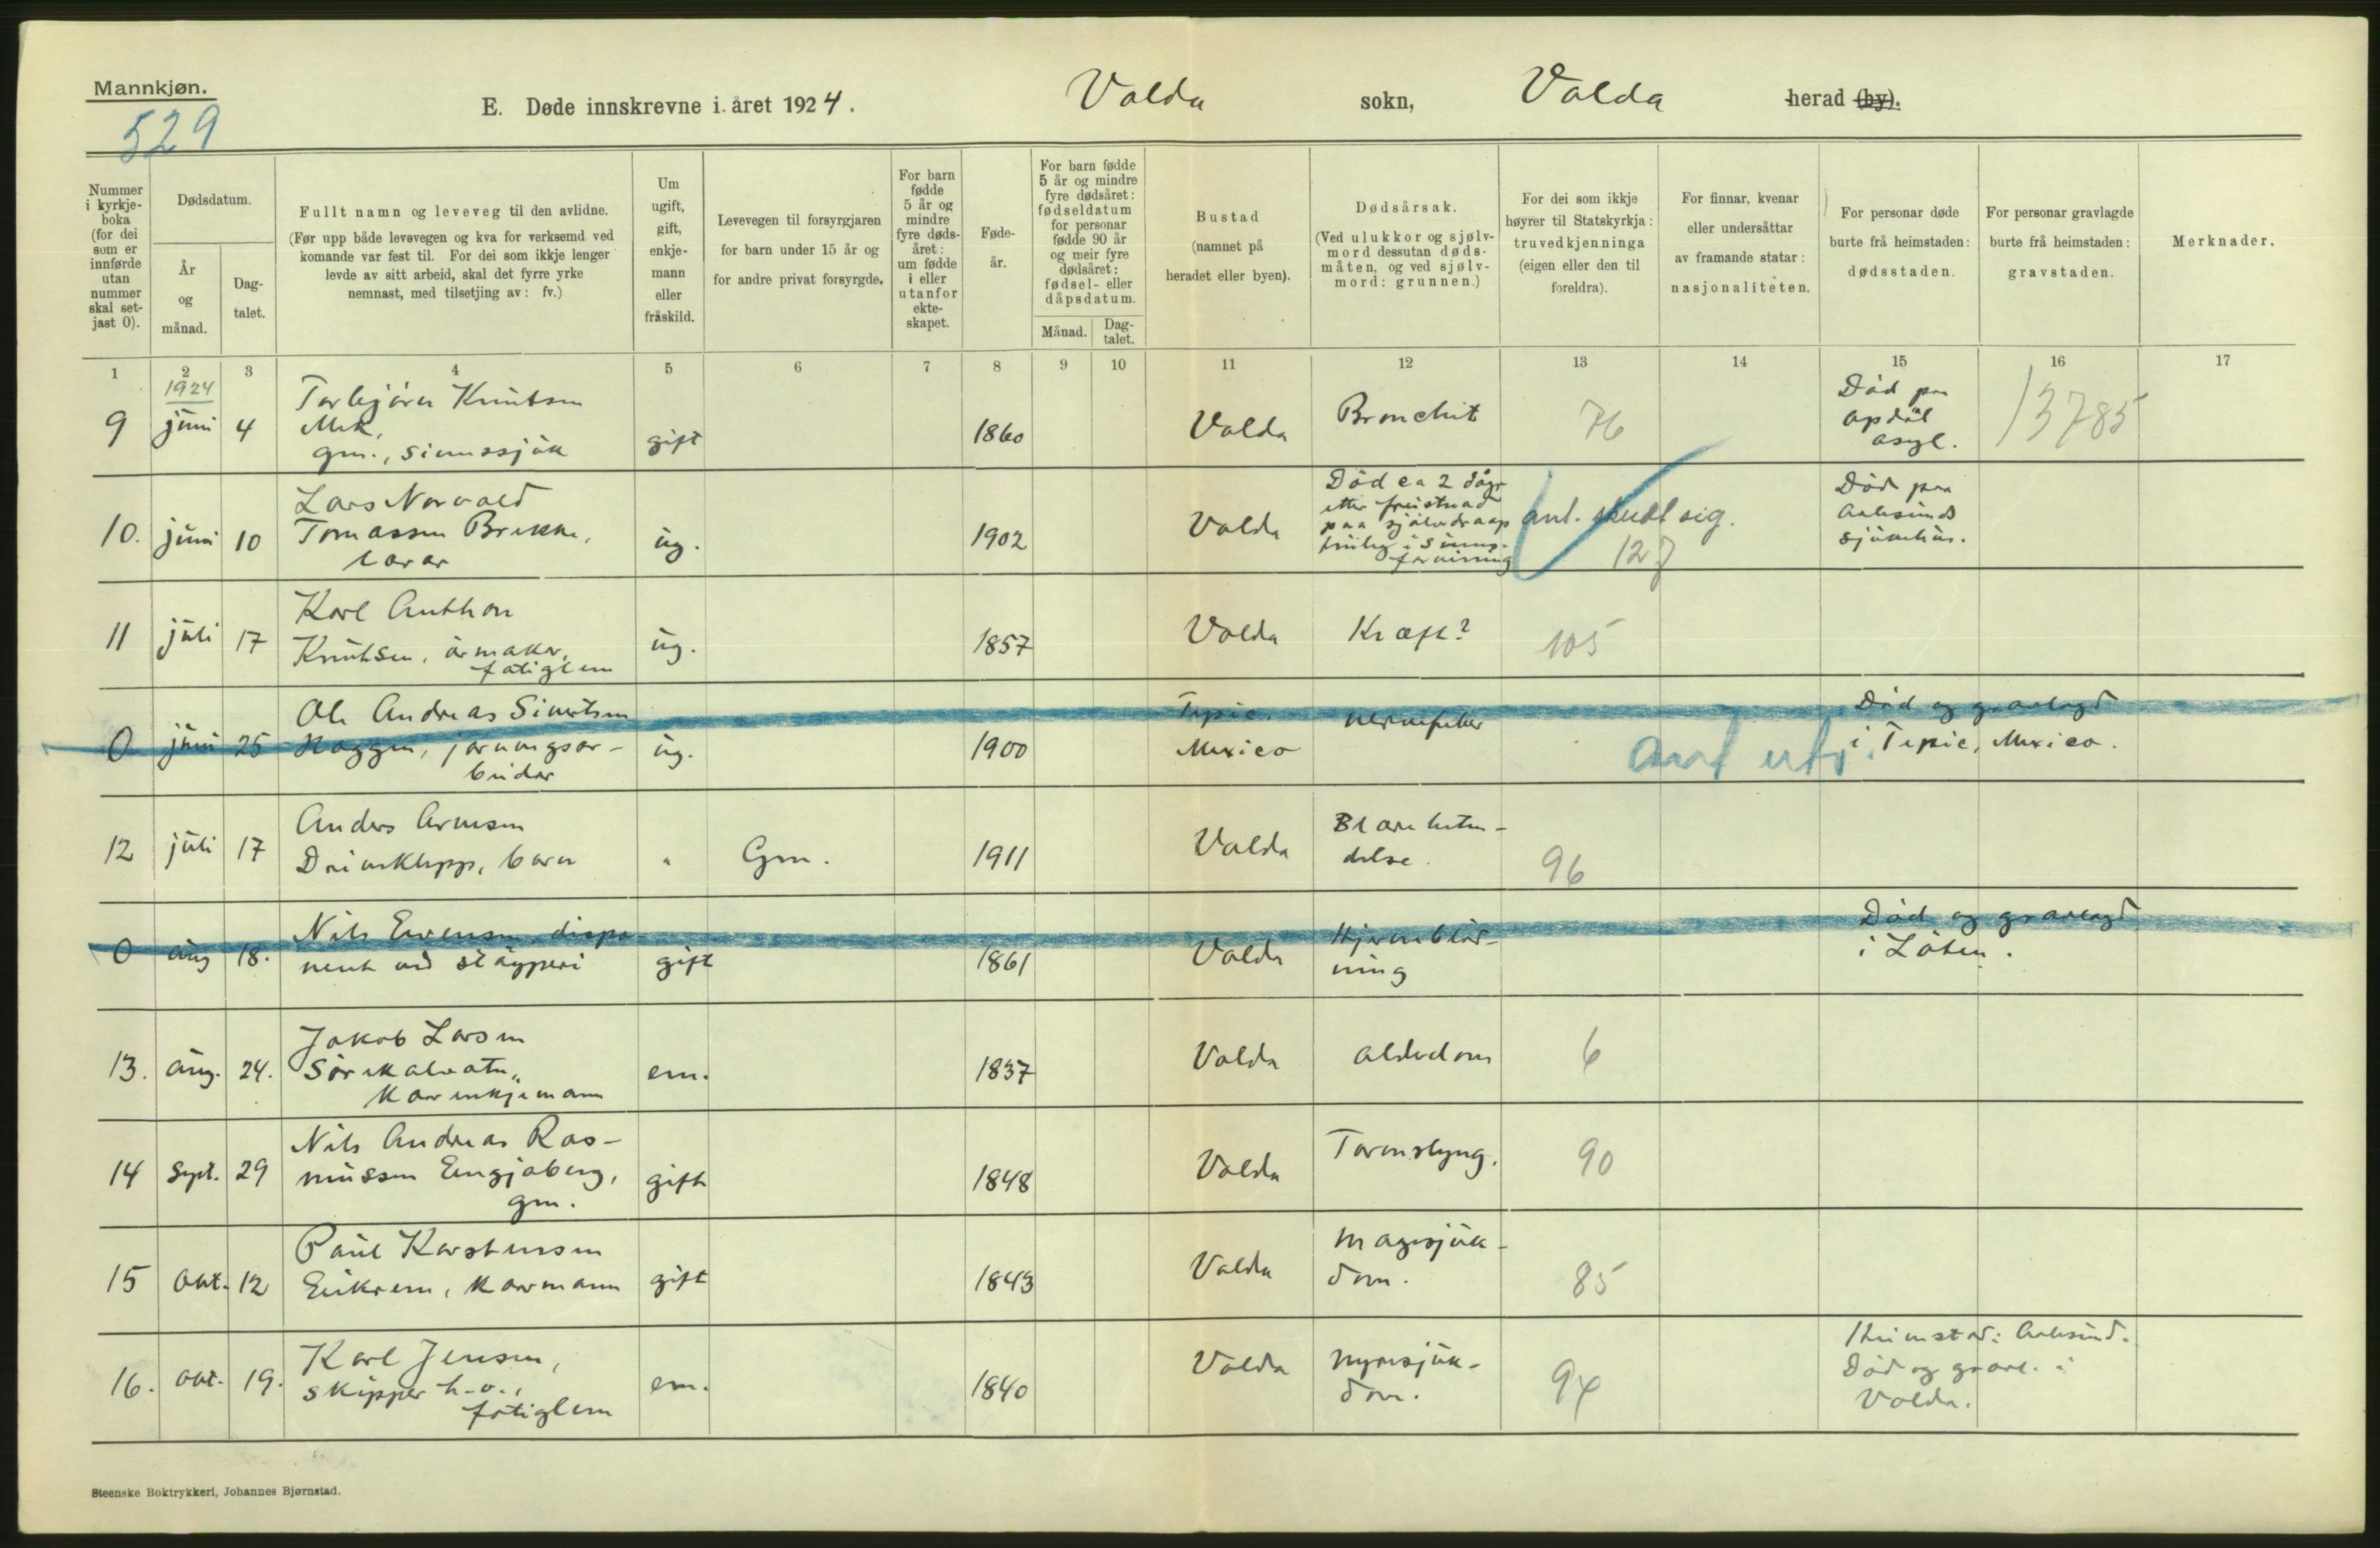 Mannkjøn.
529
E. Døde innskrevne i året 1924.
Volda sokn, Volda herad (by).
Nummer i kyrkjeboka (for dei som er innførde utan nummer skal setjast 0).
Dødsdatum.
År og månad.
Dagtalet.
Fullt namn og leveveg til den avlidne.
(Før upp både levevegen og kva for verksemd ved komande var fest til. For dei som ikkje lenger levde av sitt arbeid, skal det fyrre yrke nemnast, med tilsetjing av: fv.)
Um ugift, gift, enkjemann eller fråskild.
Levevegen til forsyrgjaren for barn under 15 år og for andre privat forsyrgde.
For barn fødde 5 år og mindre fyre dødsåret: um fødde i eller utanfor ekteskapet.
Fødeår.
For barn fødde 5 år og mindre fyre dødsåret: fødseldatum for personar fødde 90 år og meir fyre dødsåret: fødsel- eller dåpsdatum.
Månad. Dagtalet.
Bustad (namnet på heradet eller byen).
Dødsårsak.
(Ved ulukkor og sjølvmord dessutan dødsmåten, og ved sjølvmord: grunnen.)
For dei som ikkje høyrer til Statskyrkja: truvedkjenninga (eigen eller den til foreldra).
For finnar, kvenar eller undersåttar av framande statar: nasjonaliteten.
For personar døde burte frå heimstaden: dødsstaden.
For personar gravlagde burte frå heimstaden: gravstaden.
Merknader.
1 2 3 4 5 6 7 8 9 10 11 12 13 14 15 16 17
1924
9 juni 4 Torbjörn Knutsen
gm., sinnssjuk gift 1860 Volda Bronchit 76 Död paa
Opdöl
asyl. 13785
10. juni 10 Lars Norvald
Tomassen Brekke,
lærar ug. 1902 Volda Död ca 2 dagr
etter freistnad
paa sjølvdraap
truleg i sinns-
forvirring ant. skudt sig.
127 Död paa
Aalesunds
sjukehus.
11 juli 17 Karl Anthon
Knutsen, urmakar,
fatiglem ug. 1857 Volda Kræft? 105
0 juni 25 Ole Andreas Sivertsen
Haggen, jarnungsar-
beidar ug. 1900 Tepic.
Mexico nervefeber anf utv. Död og gravlagd
i Tepic, Mexico.
12 juli 17 Anders Arnesen
Dreinsklepp, barn " Gm. 1911 Volda Blærebeten-
delse. 96
0 aug 18. Nils Evensen, dispo-
nent ved støyperi gift 1861 Volda Hjerneblød-
ning Död og gravlagd
i Löten.
13. aug. 24. Jakob Larsen
Sörekalvatn,
kårenkjemann em. 1837 Volda alderdom 6
14 Sept. 29 Nils Andreas Ras-
mussen Engjaberg,
gm. gift 1848 Volda Tarmslyng. 90
15 Okt. 12 Paul Karstensen
Eikrem, kårmann gift 1843 Volda Magesjuk-
dom. 85
16. okt. 19. Karl Jensen,
skipper h.v.,
fatiglem em. 1840 Volda Nyresjuk-
dom. 94 Heimstad: Aalesund.
Död og gravl. i
Volda.
Steenske Boktrykkeri, Johannes Bjørnstad.